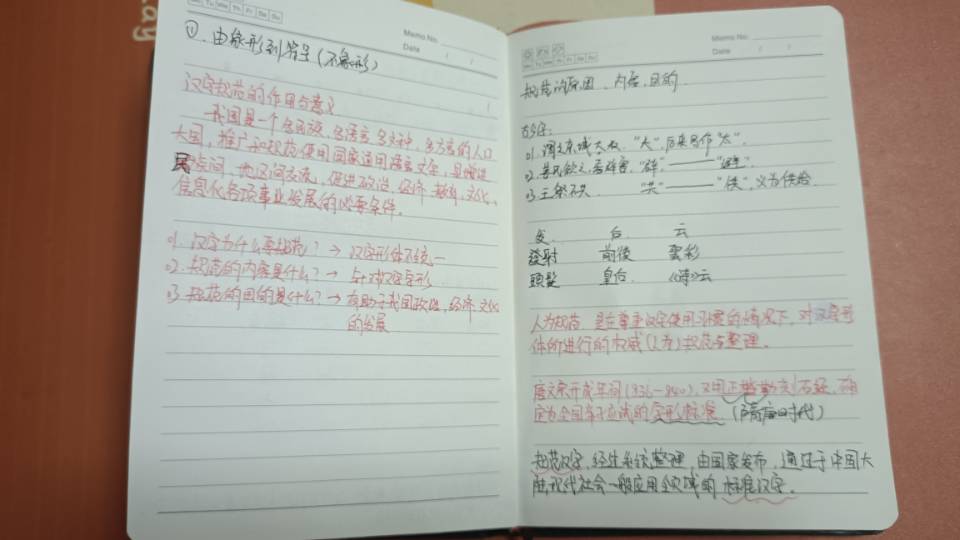 Mo Tu We Th Fr Sa Su
Memo No.
Date / /
①. 由象形到符号(不象形)
汉字规范的作用与意义
我国是一个多民族、多语言、多文种、多方言的人口
大国,推广和规范使用国家通用语言文字,是增进
民族间、地区间交流,促进政治、经济、教育、文化、
信息化各项事业发展的必要条件。
01. 汉字为什么要规范? → 汉字形体不统一
02. 规范的内容是什么? → 针对汉字字形
03. 规范的目的是什么? → 有助于我国政治、经济、文化
的发展
Memo No.
Mo Tu We Th Fr Sa Su
Date / /
规范的原因、内容、目的
古今字:
01. 谓之京城大叔, "大", 后来写作"太".
02. "辟" —— "避".
03. "共" —— "供", 义为供给.
发 后 云
發射 前後 雲彩
頭髮 皇后 《诗》云
人为规范, 是在尊重汉字使用习惯的情况下, 对汉字形
体所进行的权威(人为)规范与整理。
唐文宗开成年间(836-840), 又用正楷勒刻石经, 确
定为全国科举应试的字形标准。(隋唐时代)
规范汉字, 经过系统整理, 由国家发布, 通过于中国大
陆现代社会一般应用领域的标准汉字。